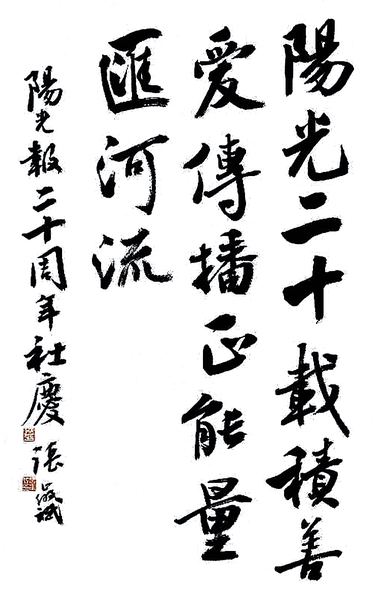 陽光二十載積善
愛傳播正能量
匯河流
陽光報二十周年社慶
張